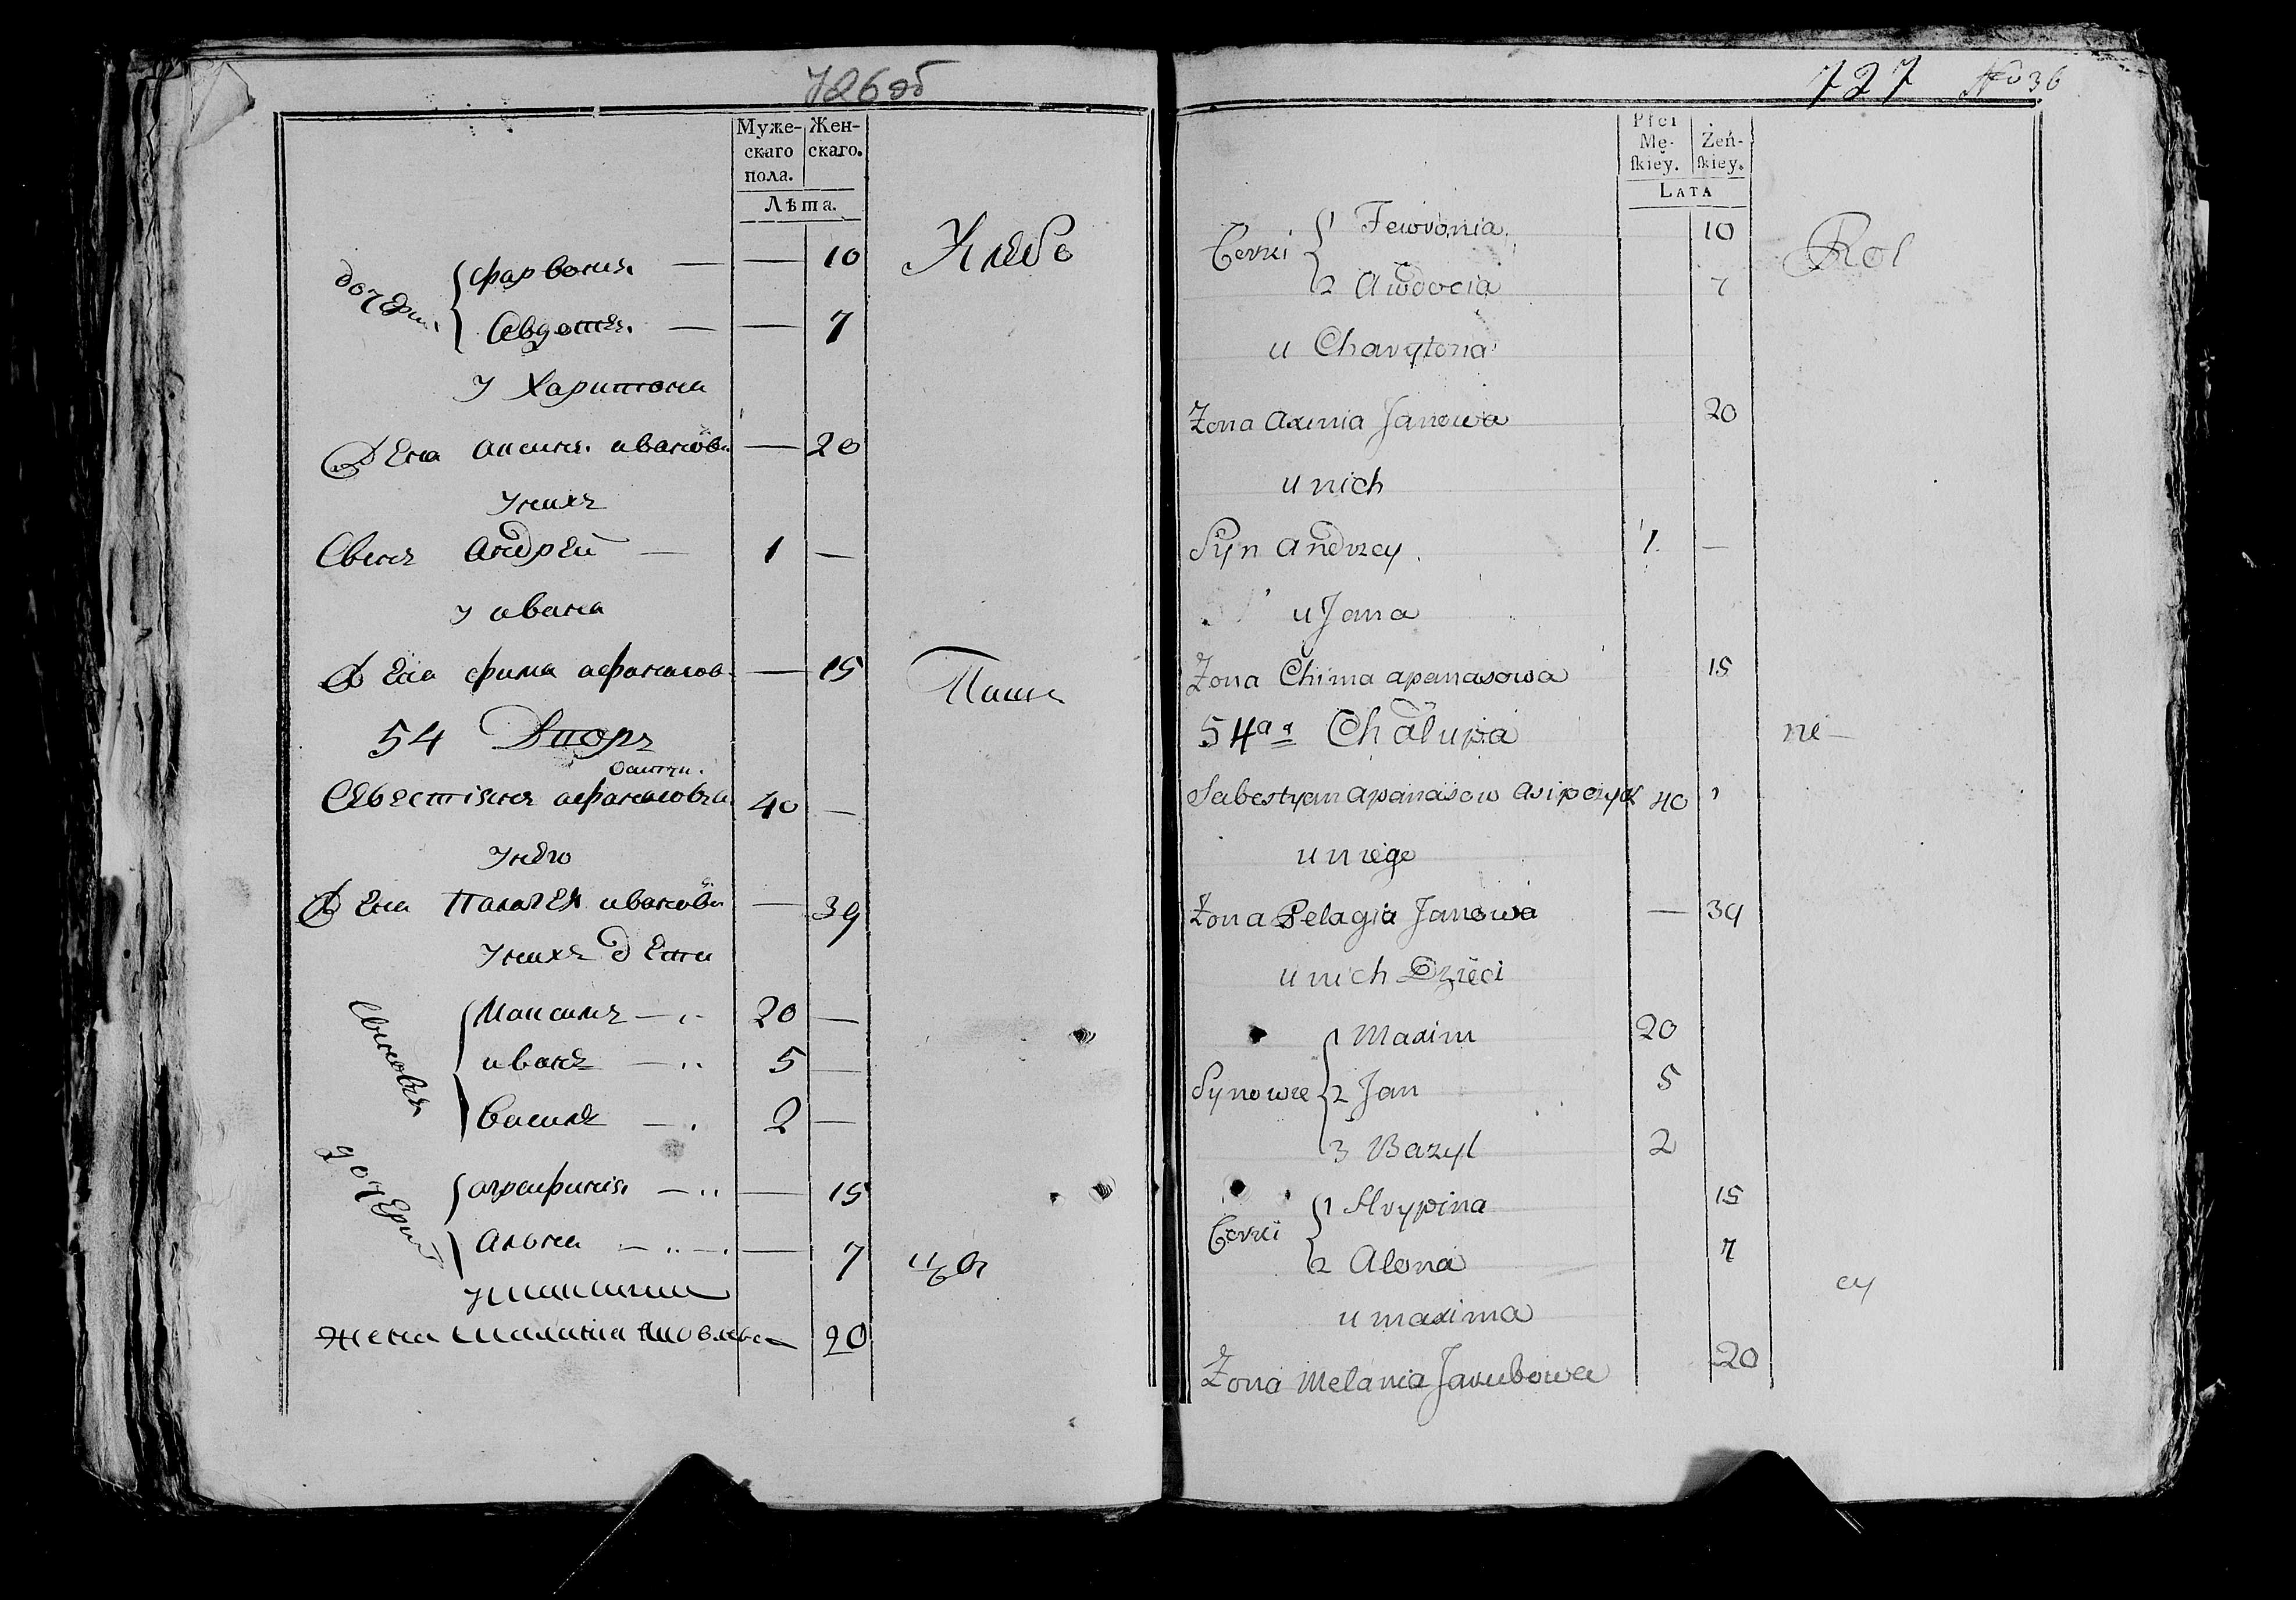 726об
Муже-
скаго
пола.
Жен-
скаго.
Лѣта.
дочери
Фарвония — — 10
Хлебо
Овдотя — — 7
у Харитона
Жена аксиня ивановы — 20
у нихъ
Сынъ андрей — 1 —
у ивана
Жена фима афанасов — 15
54 Дворъ
Севестіянъ афанасовъ 40 —
у него
Жена Палагея иванова — 39
у нихъ дети
Сыновья
Максимъ — 20 —
иванъ — 5 —
Василь — 2 —
дочери
аграфиния — — 15
Алона — — 7
у максима
жена маланиа яковлева — 20
727 No 36
Płci
Mę-
ſkiey.
Żeń-
ſkiey.
LATA
Corki
1 Fewronia 10
2 Awdocia 7
u Charytona
Żona Axinia Janowa 20
u nich
Syn Andrzey 1 —
u Jana
Żona Chima apanasowa 15
54a Chałupa
ne —
Sabestyan apanasow 40
u niego
Żona Pelagia Janowa — 39
u nich Dzieci
Synowie
1 Maxim 20
2 Jan 5
3 Bazyl 2
Corki
1 Hrypina 15
2 Alona 7
cy
u maxima
Żona Melania Jakubowa 20